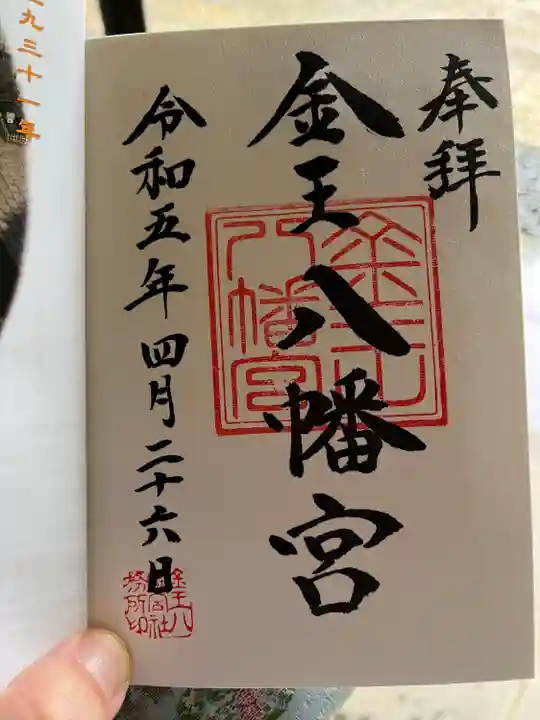 奉拝
金王八幡宮
令和五年四月二十六日
金王八幡宮
金王八
幡宮社
務所印
九三十一年